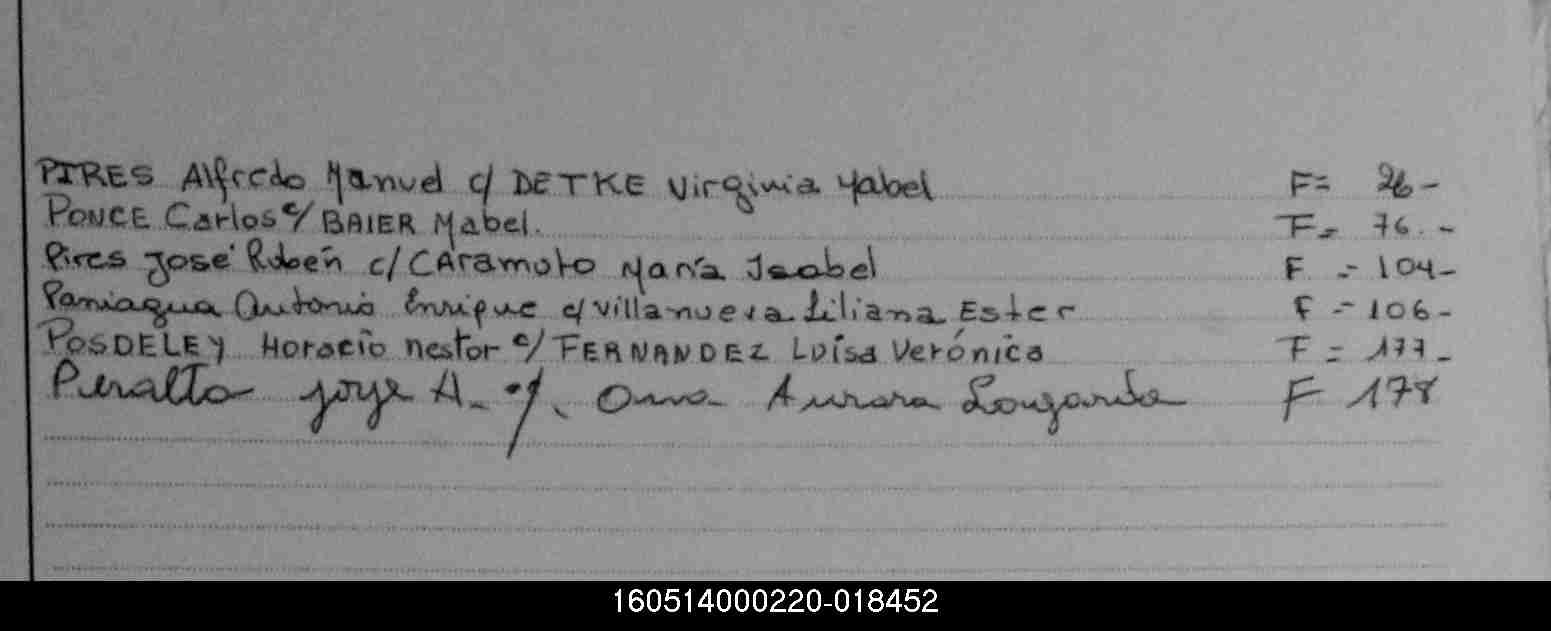 PIRES Alfredo Manuel c/ DETKE Virginia Yabel F= 26-
PONCE Carlos c/ BAIER Mabel. F= 76.-
Pires José Rubén c/ CAramuto María Isabel F - 104-
Paniagua Antonio Enrique c/ Villanueva Liliana Ester F - 106-
POSDELEY Horacio nestor c/ FERNANDEZ Luisa Verónica F = 177-
Peralta Jorge A. c/. Aurora F 178
160514000220-018452